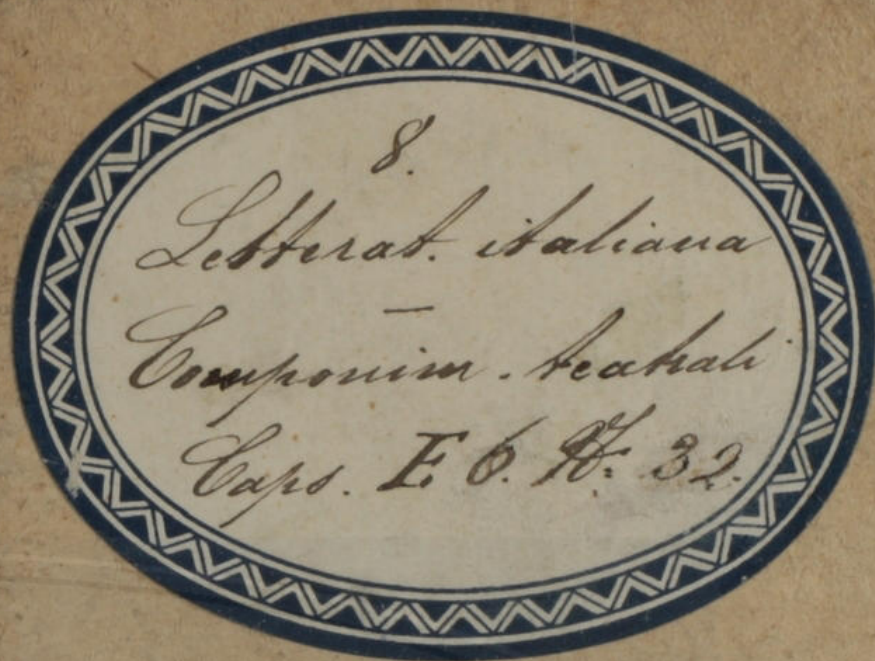 8.
Letterat. italiana
—
Componim. teatrali
Caps. E 6. N: 32.